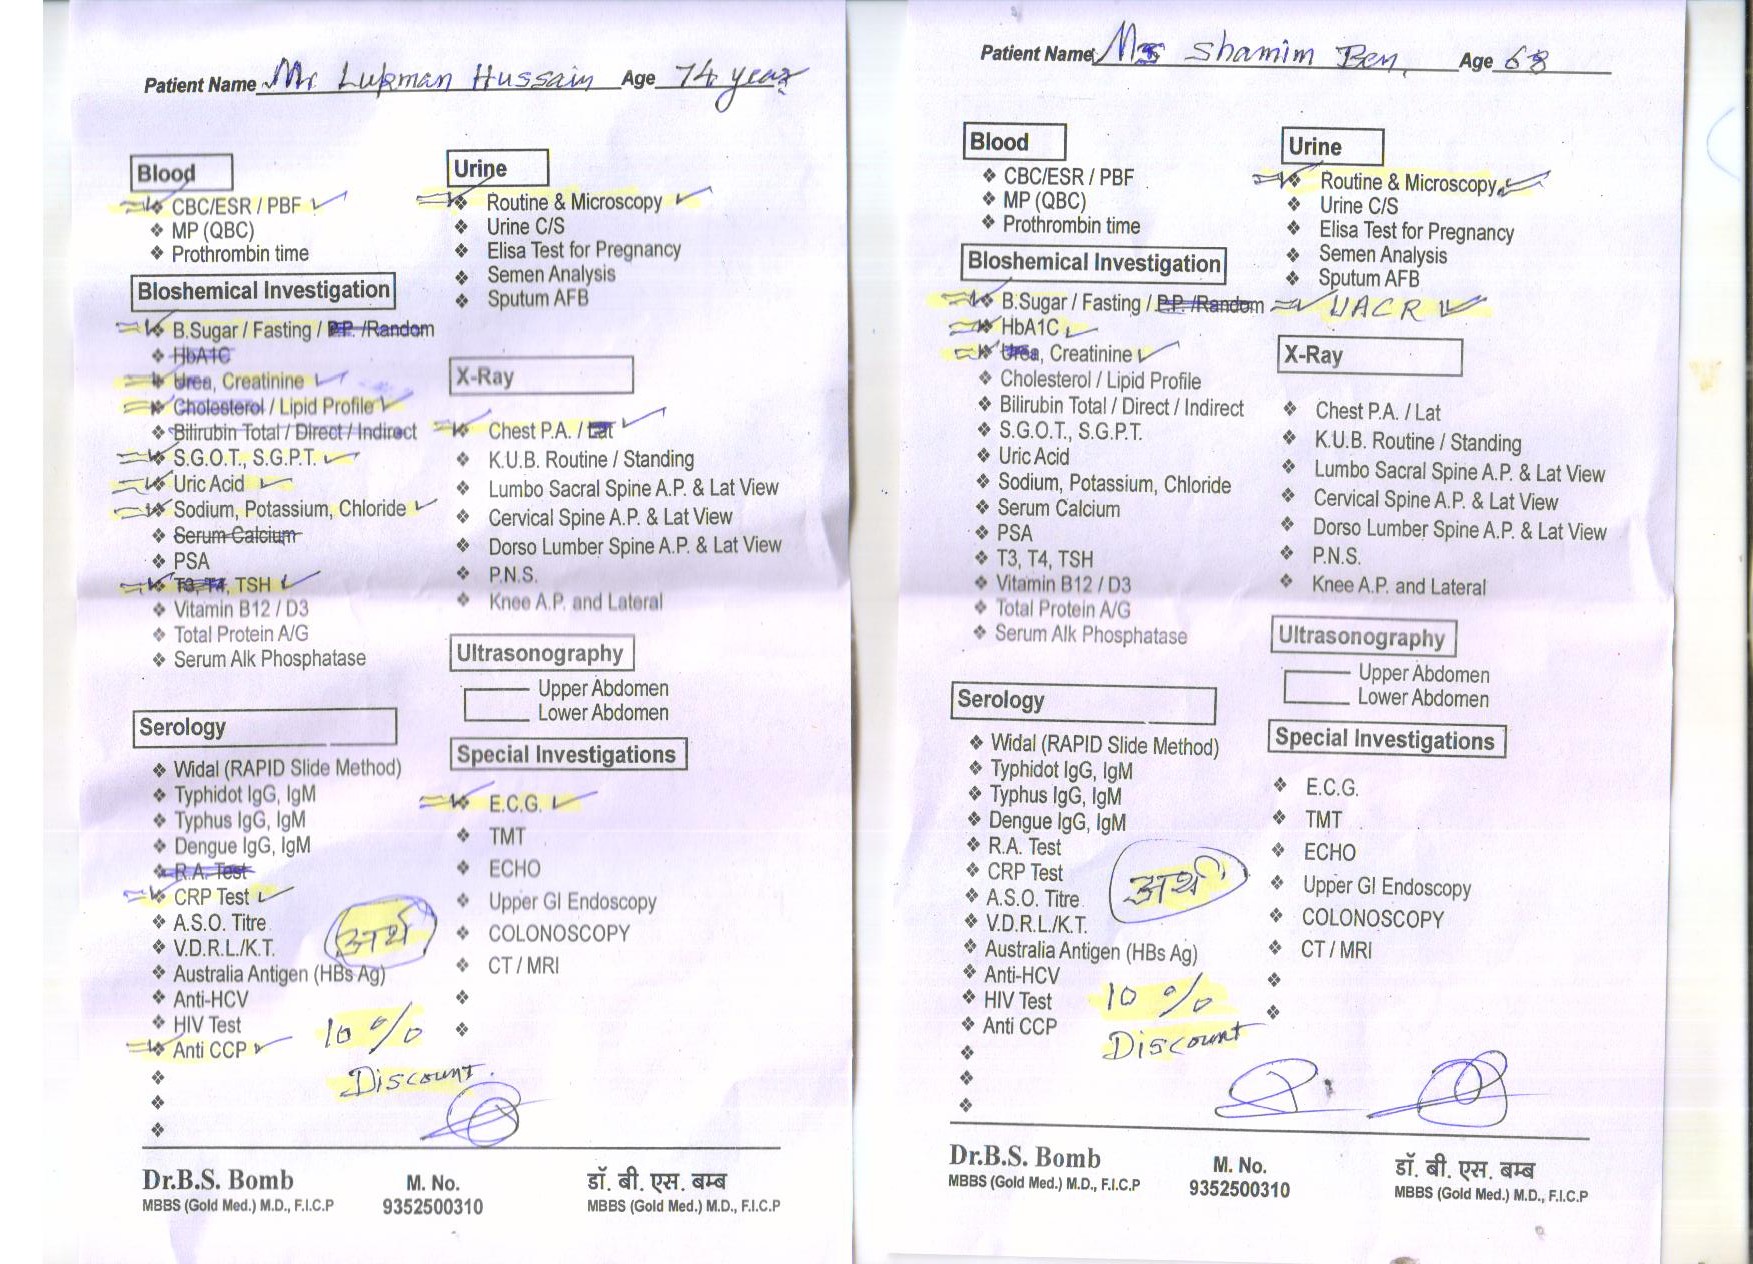 Patient Name Mr. Lukman Hussain Age 74 year
Blood
❖ CBC/ESR / PBF ✓
❖ MP (QBC)
❖ Prothrombin time
Bloshemical Investigation
❖ B.Sugar / Fasting / P.P. /Random
❖ HbA1C
❖ Urea, Creatinine ✓
❖ Cholesterol / Lipid Profile ✓
❖ Bilirubin Total / Direct / Indirect
❖ S.G.O.T., S.G.P.T. ✓
❖ Uric Acid ✓
❖ Sodium, Potassium, Chloride ✓
❖ Serum Calcium
❖ PSA
❖ T3, T4, TSH ✓
❖ Vitamin B12 / D3
❖ Total Protein A/G
❖ Serum Alk Phosphatase
Serology
❖ Widal (RAPID Slide Method)
❖ Typhidot IgG, IgM
❖ Typhus IgG, IgM
❖ Dengue IgG, IgM
❖ R.A. Test
❖ CRP Test ✓
❖ A.S.O. Titre
❖ V.D.R.L./K.T.
❖ Australia Antigen (HBs Ag)
❖ Anti-HCV
❖ HIV Test
❖ Anti CCP ✓
अर्थ
10 %
Discount.
Urine
❖ Routine & Microscopy ✓
❖ Urine C/S
❖ Elisa Test for Pregnancy
❖ Semen Analysis
❖ Sputum AFB
X-Ray
❖ Chest P.A. / Lat ✓
❖ K.U.B. Routine / Standing
❖ Lumbo Sacral Spine A.P. & Lat View
❖ Cervical Spine A.P. & Lat View
❖ Dorso Lumber Spine A.P. & Lat View
❖ P.N.S.
❖ Knee A.P. and Lateral
Ultrasonography
Upper Abdomen
Lower Abdomen
Special Investigations
❖ E.C.G. ✓
❖ TMT
❖ ECHO
❖ Upper GI Endoscopy
❖ COLONOSCOPY
❖ CT / MRI
Dr.B.S. Bomb
MBBS (Gold Med.) M.D., F.I.C.P
M. No.
9352500310
डॉ. बी. एस. बम्ब
MBBS (Gold Med.) M.D., F.I.C.P
Patient Name Shamim Ben, Age 68
Blood
❖ CBC/ESR / PBF
❖ MP (QBC)
❖ Prothrombin time
Bloshemical Investigation
❖ B.Sugar / Fasting / P.P. /Random
❖ HbA1C ✓
❖ Urea, Creatinine ✓
❖ Cholesterol / Lipid Profile
❖ Bilirubin Total / Direct / Indirect
❖ S.G.O.T., S.G.P.T.
❖ Uric Acid
❖ Sodium, Potassium, Chloride
❖ Serum Calcium
❖ PSA
❖ T3, T4, TSH
❖ Vitamin B12 / D3
❖ Total Protein A/G
❖ Serum Alk Phosphatase
Serology
❖ Widal (RAPID Slide Method)
❖ Typhidot IgG, IgM
❖ Typhus IgG, IgM
❖ Dengue IgG, IgM
❖ R.A. Test
❖ CRP Test
❖ A.S.O. Titre
❖ V.D.R.L./K.T.
❖ Australia Antigen (HBs Ag)
❖ Anti-HCV
❖ HIV Test
❖ Anti CCP
अर्थ
10 %
Discount
Urine
❖ Routine & Microscopy ✓
❖ Urine C/S
❖ Elisa Test for Pregnancy
❖ Semen Analysis
❖ Sputum AFB
UACR ✓
X-Ray
❖ Chest P.A. / Lat
❖ K.U.B. Routine / Standing
❖ Lumbo Sacral Spine A.P. & Lat View
❖ Cervical Spine A.P. & Lat View
❖ Dorso Lumber Spine A.P. & Lat View
❖ P.N.S.
❖ Knee A.P. and Lateral
Ultrasonography
Upper Abdomen
Lower Abdomen
Special Investigations
❖ E.C.G.
❖ TMT
❖ ECHO
❖ Upper GI Endoscopy
❖ COLONOSCOPY
❖ CT / MRI
Dr.B.S. Bomb
MBBS (Gold Med.) M.D., F.I.C.P
M. No.
9352500310
डॉ. बी. एस. बम्ब
MBBS (Gold Med.) M.D., F.I.C.P